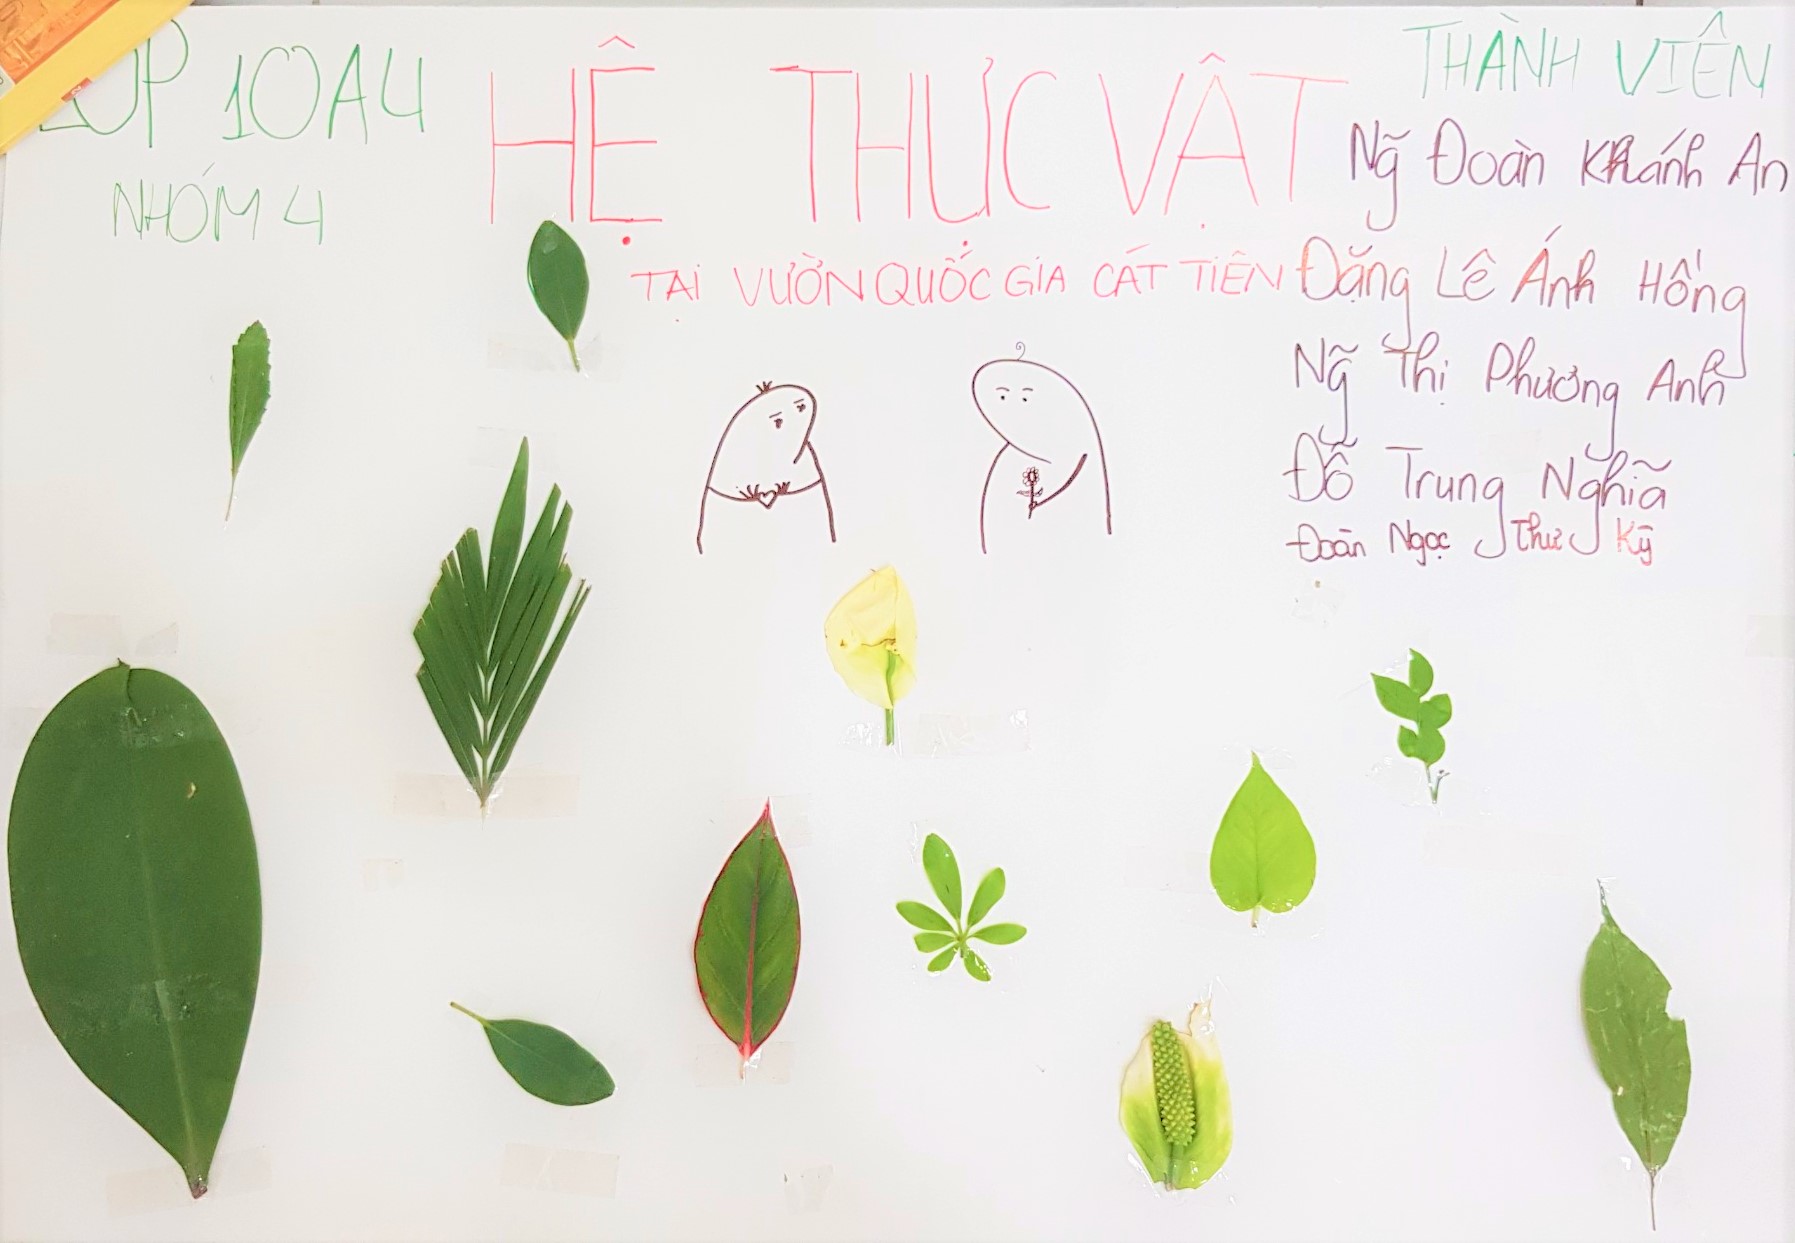 LỚP 10A4
NHÓM 4
HỆ THỰC VẬT
TẠI VƯỜN QUỐC GIA CÁT TIÊN
THÀNH VIÊN
Ng̃ Đoàn Khánh An
Đặng Lê Ánh Hồng
Ng̃ Thị Phương Anh
Đỗ Trung Nghĩa
Đoàn Ngọc Thư Kỳ